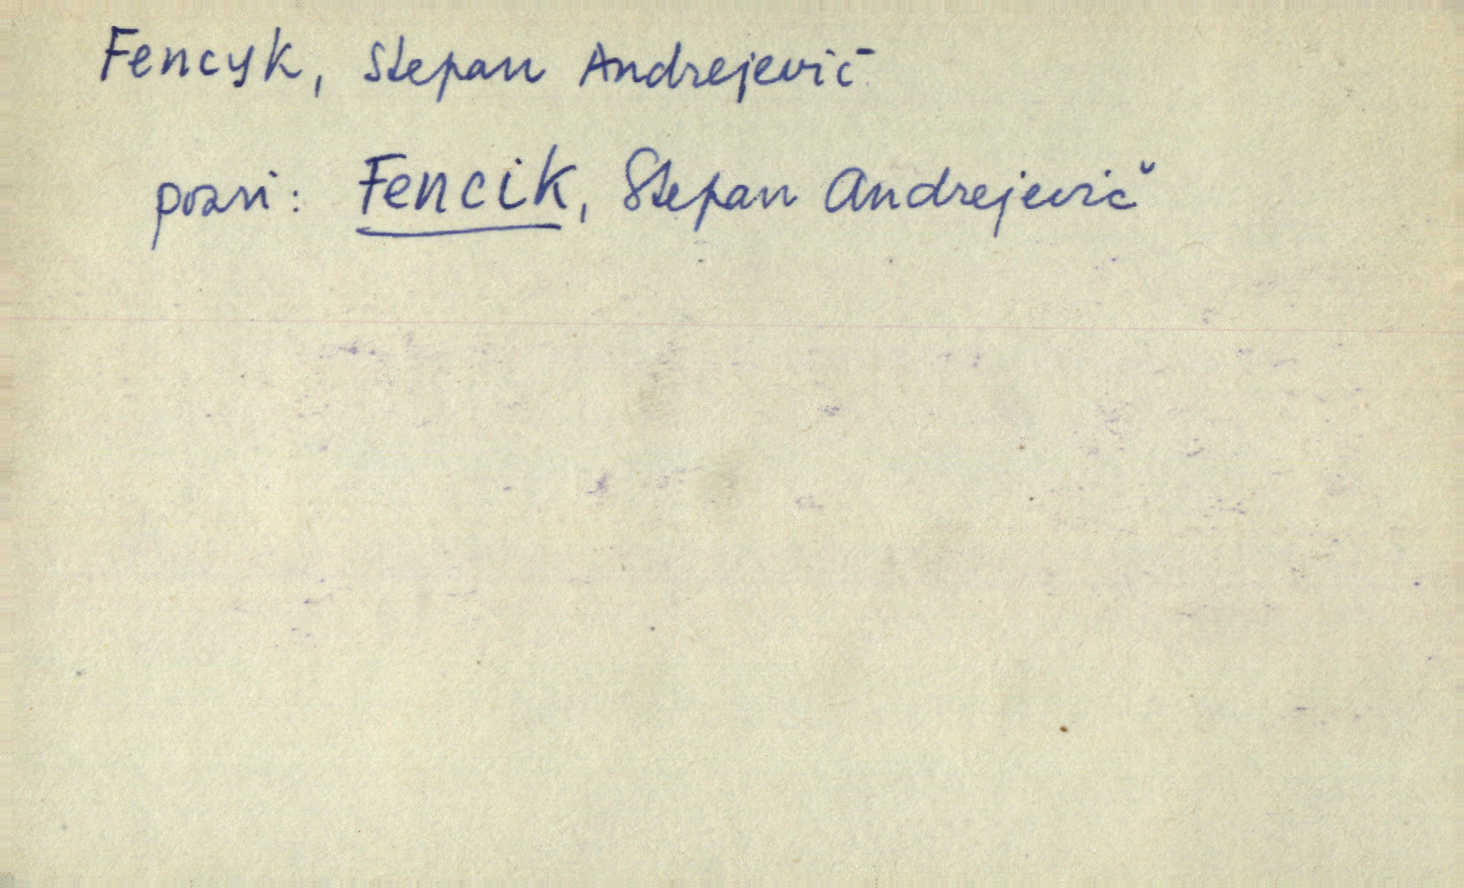 Fencyk, Stepan Andrejevič
pozri: Fencik, Stepan Andrejevič